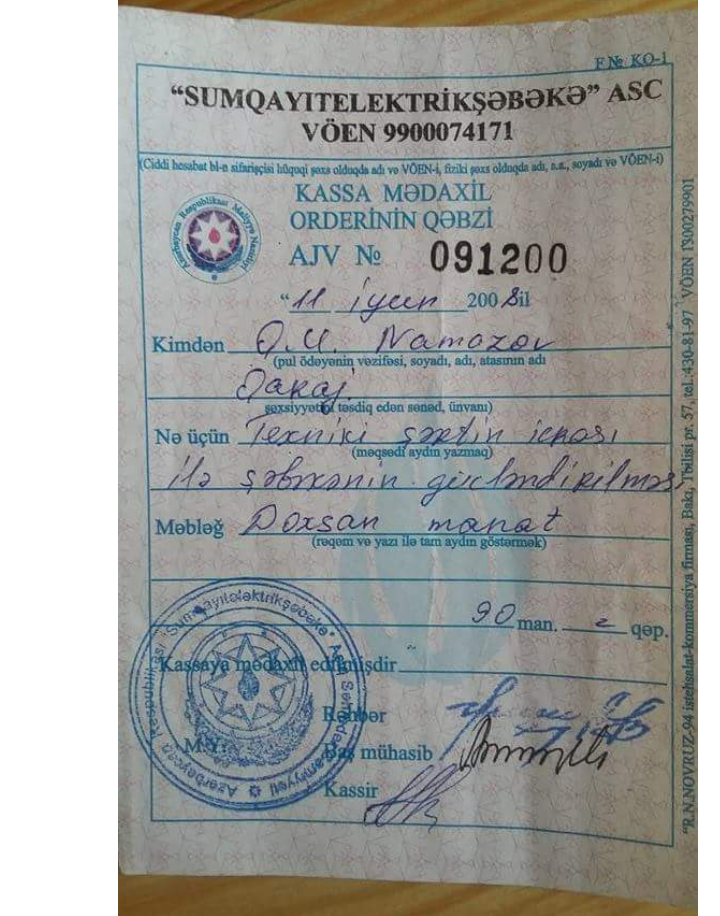 F № KO-1
"SUMQAYITELEKTRİKŞƏBƏKƏ" ASC
VÖEN 9900074171
(Ciddi hesabat bl-n sifarişçisi hüquqi şəxs olduqda adı və VÖEN-i, fiziki şəxs olduqda adı, a.a., soyadı və VÖEN-i)
KASSA MƏDAXİL
ORDERİNİN QƏBZİ
AJV № 091200
Azərbaycan Respublikası Maliyyə Nazirliyi
"11 iyun 2008 il
Kimdən Q.U. Namazov
(pul ödəyənin vəzifəsi, soyadı, adı, atasının adı
Qaraj
şəxsiyyətini təsdiq edən sənəd, ünvanı)
Nə üçün Texniki şərtin icrası
(məqsədi aydın yazmaq)
ilə şəbəkənin gücləndirilməsi
Məbləğ Doxsan manat
(rəqəm və yazı ilə tam aydın göstərmək)
90 man. qəp.
Kassaya mədaxil edilmişdir
Rəhbər
M.Y. Baş mühasib
Kassir
Azərbaycan Respublikası "Sumqayıtelektrikşəbəkə" Açıq Səhmdar Cəmiyyəti
"R.N.NOVRUZ-94 istehsalat-kommersiya firması, Bakı, Tbilisi pr. 57, tel.:430-81-97 VÖEN 1300279901